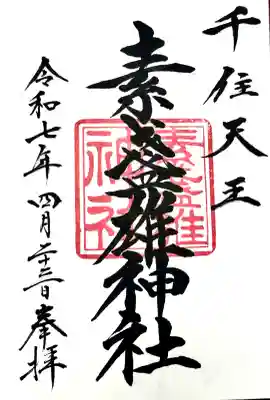 千住天王
素盞雄神社
令和七年四月二十二日奉拝
素盞雄
神社